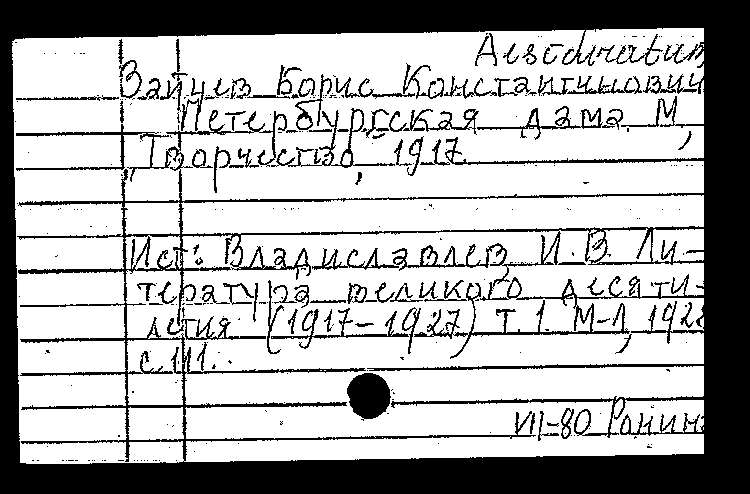 Desideratum
Зайцев Борис Константинович
Петербургская дама. М.,
„Творчество, 1917.
Ист: Владиславлев, И. В. Ли-
тература великого десяти-
летия (1917-1927) Т. 1. М-Л, 1928
с. 111.
VII-80 Ранин